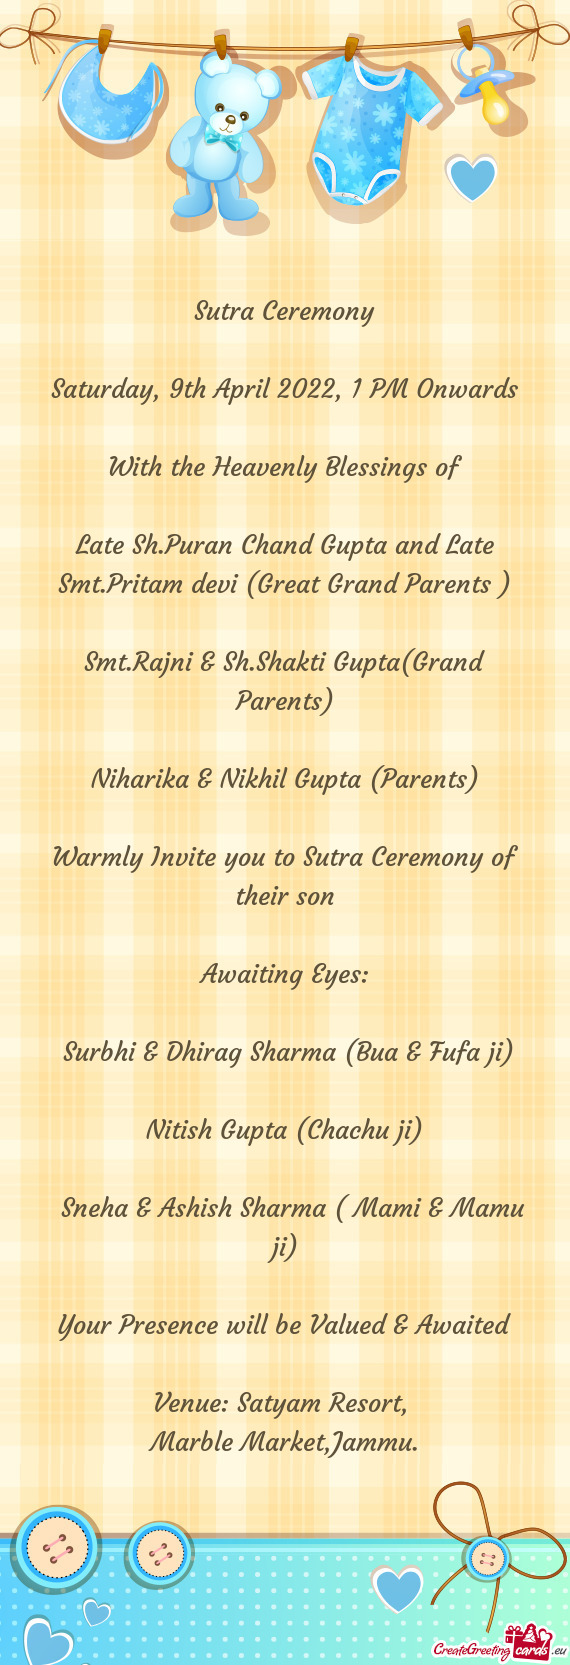 Sutra Ceremony
Saturday, 9th April 2022, 1 PM Onwards
With the Heavenly Blessings of
Late Sh.Puran Chand Gupta and Late
Smt.Pritam devi (Great Grand Parents )
Smt.Rajni & Sh.Shakti Gupta(Grand
Parents)
Niharika & Nikhil Gupta (Parents)
Warmly Invite you to Sutra Ceremony of
their son
Awaiting Eyes:
Surbhi & Dhirag Sharma (Bua & Fufa ji)
Nitish Gupta (Chachu ji)
Sneha & Ashish Sharma ( Mami & Mamu
ji)
Your Presence will be Valued & Awaited
Venue: Satyam Resort,
Marble Market,Jammu.
CreateGreetingcards.eu